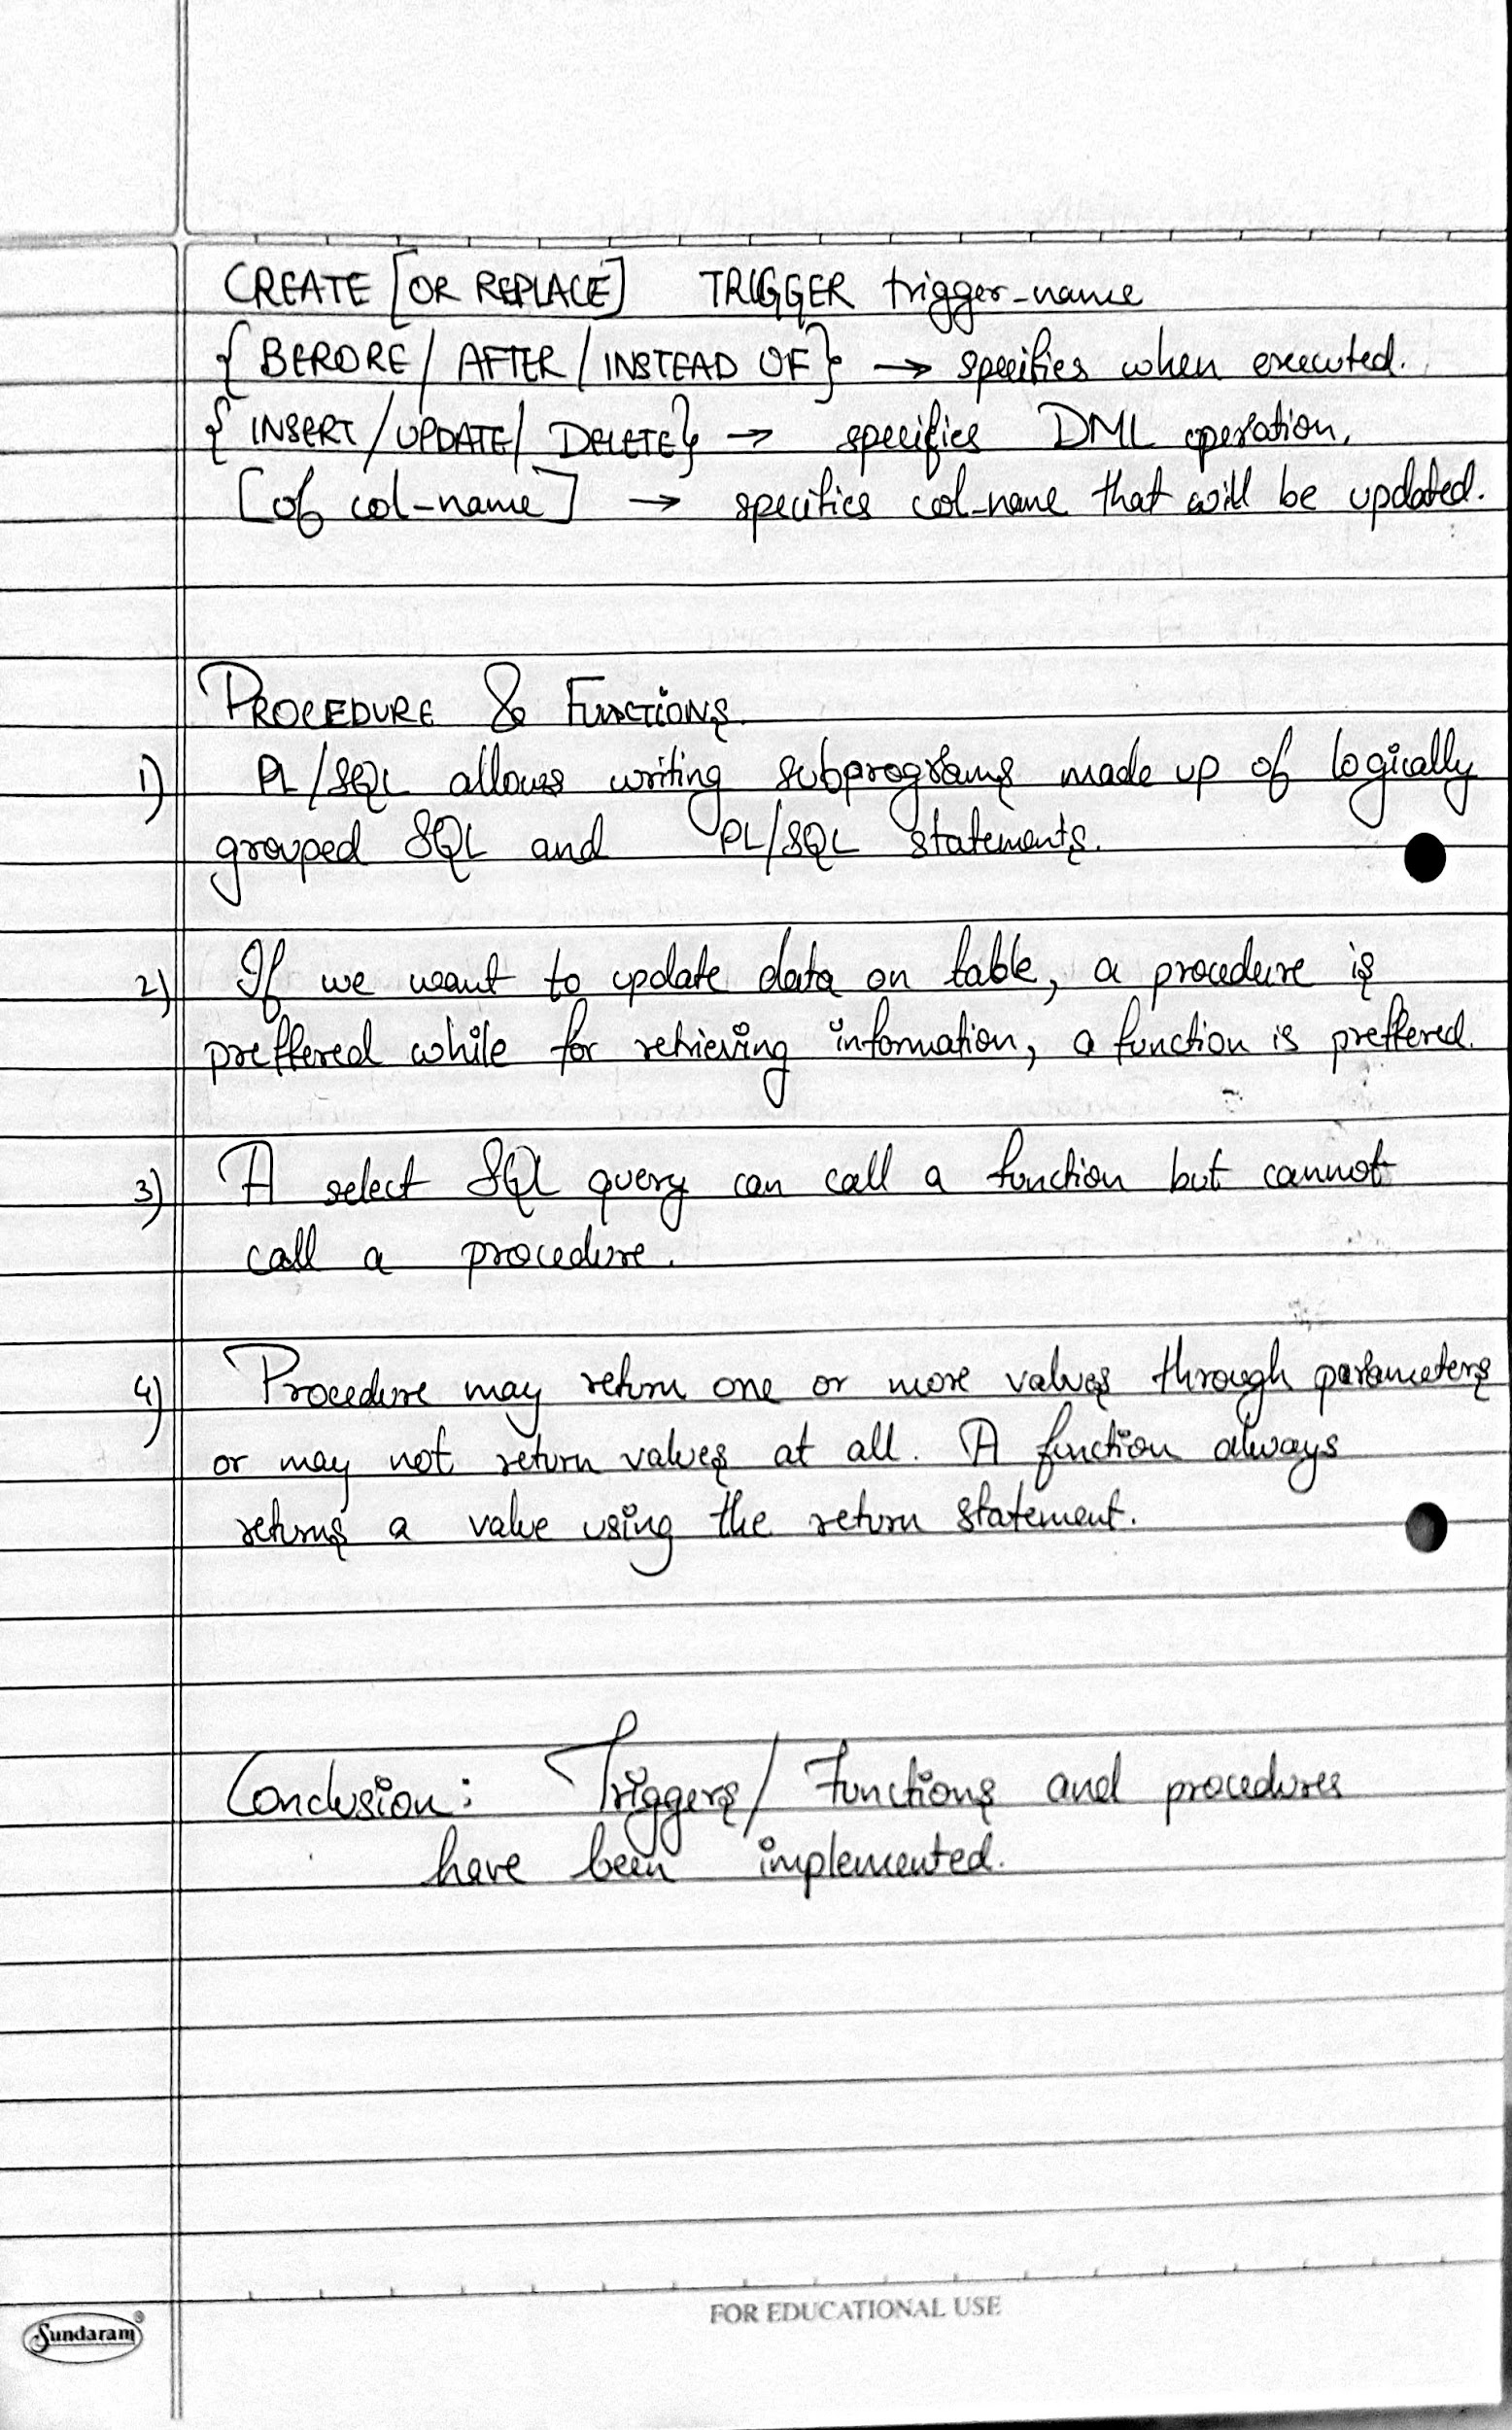 CREATE [OR REPLACE] TRIGGER trigger-name
{ BERORE / AFTER / INSTEAD OF } → specifies when executed.
{ INSERT / UPDATE / DELETE } → specifies DML operation.
[of col-name] → specifies col-name that will be updated.
PROCEDURE & FUNCTIONS.
1) PL/SQL allows writing subprograms made up of logically
grouped SQL and PL/SQL statements.
2) If we want to update data on table, a procedure is
preffered while for retrieving information, a function is preffered.
3) A select SQL query can call a function but cannot
call a procedure.
4) Procedure may return one or more values through parameters
or may not return values at all. A function always
returns a value using the return statement.
Conclusion: Triggers/ Functions and procedures
have been implemented.
FOR EDUCATIONAL USE
Sundaram®